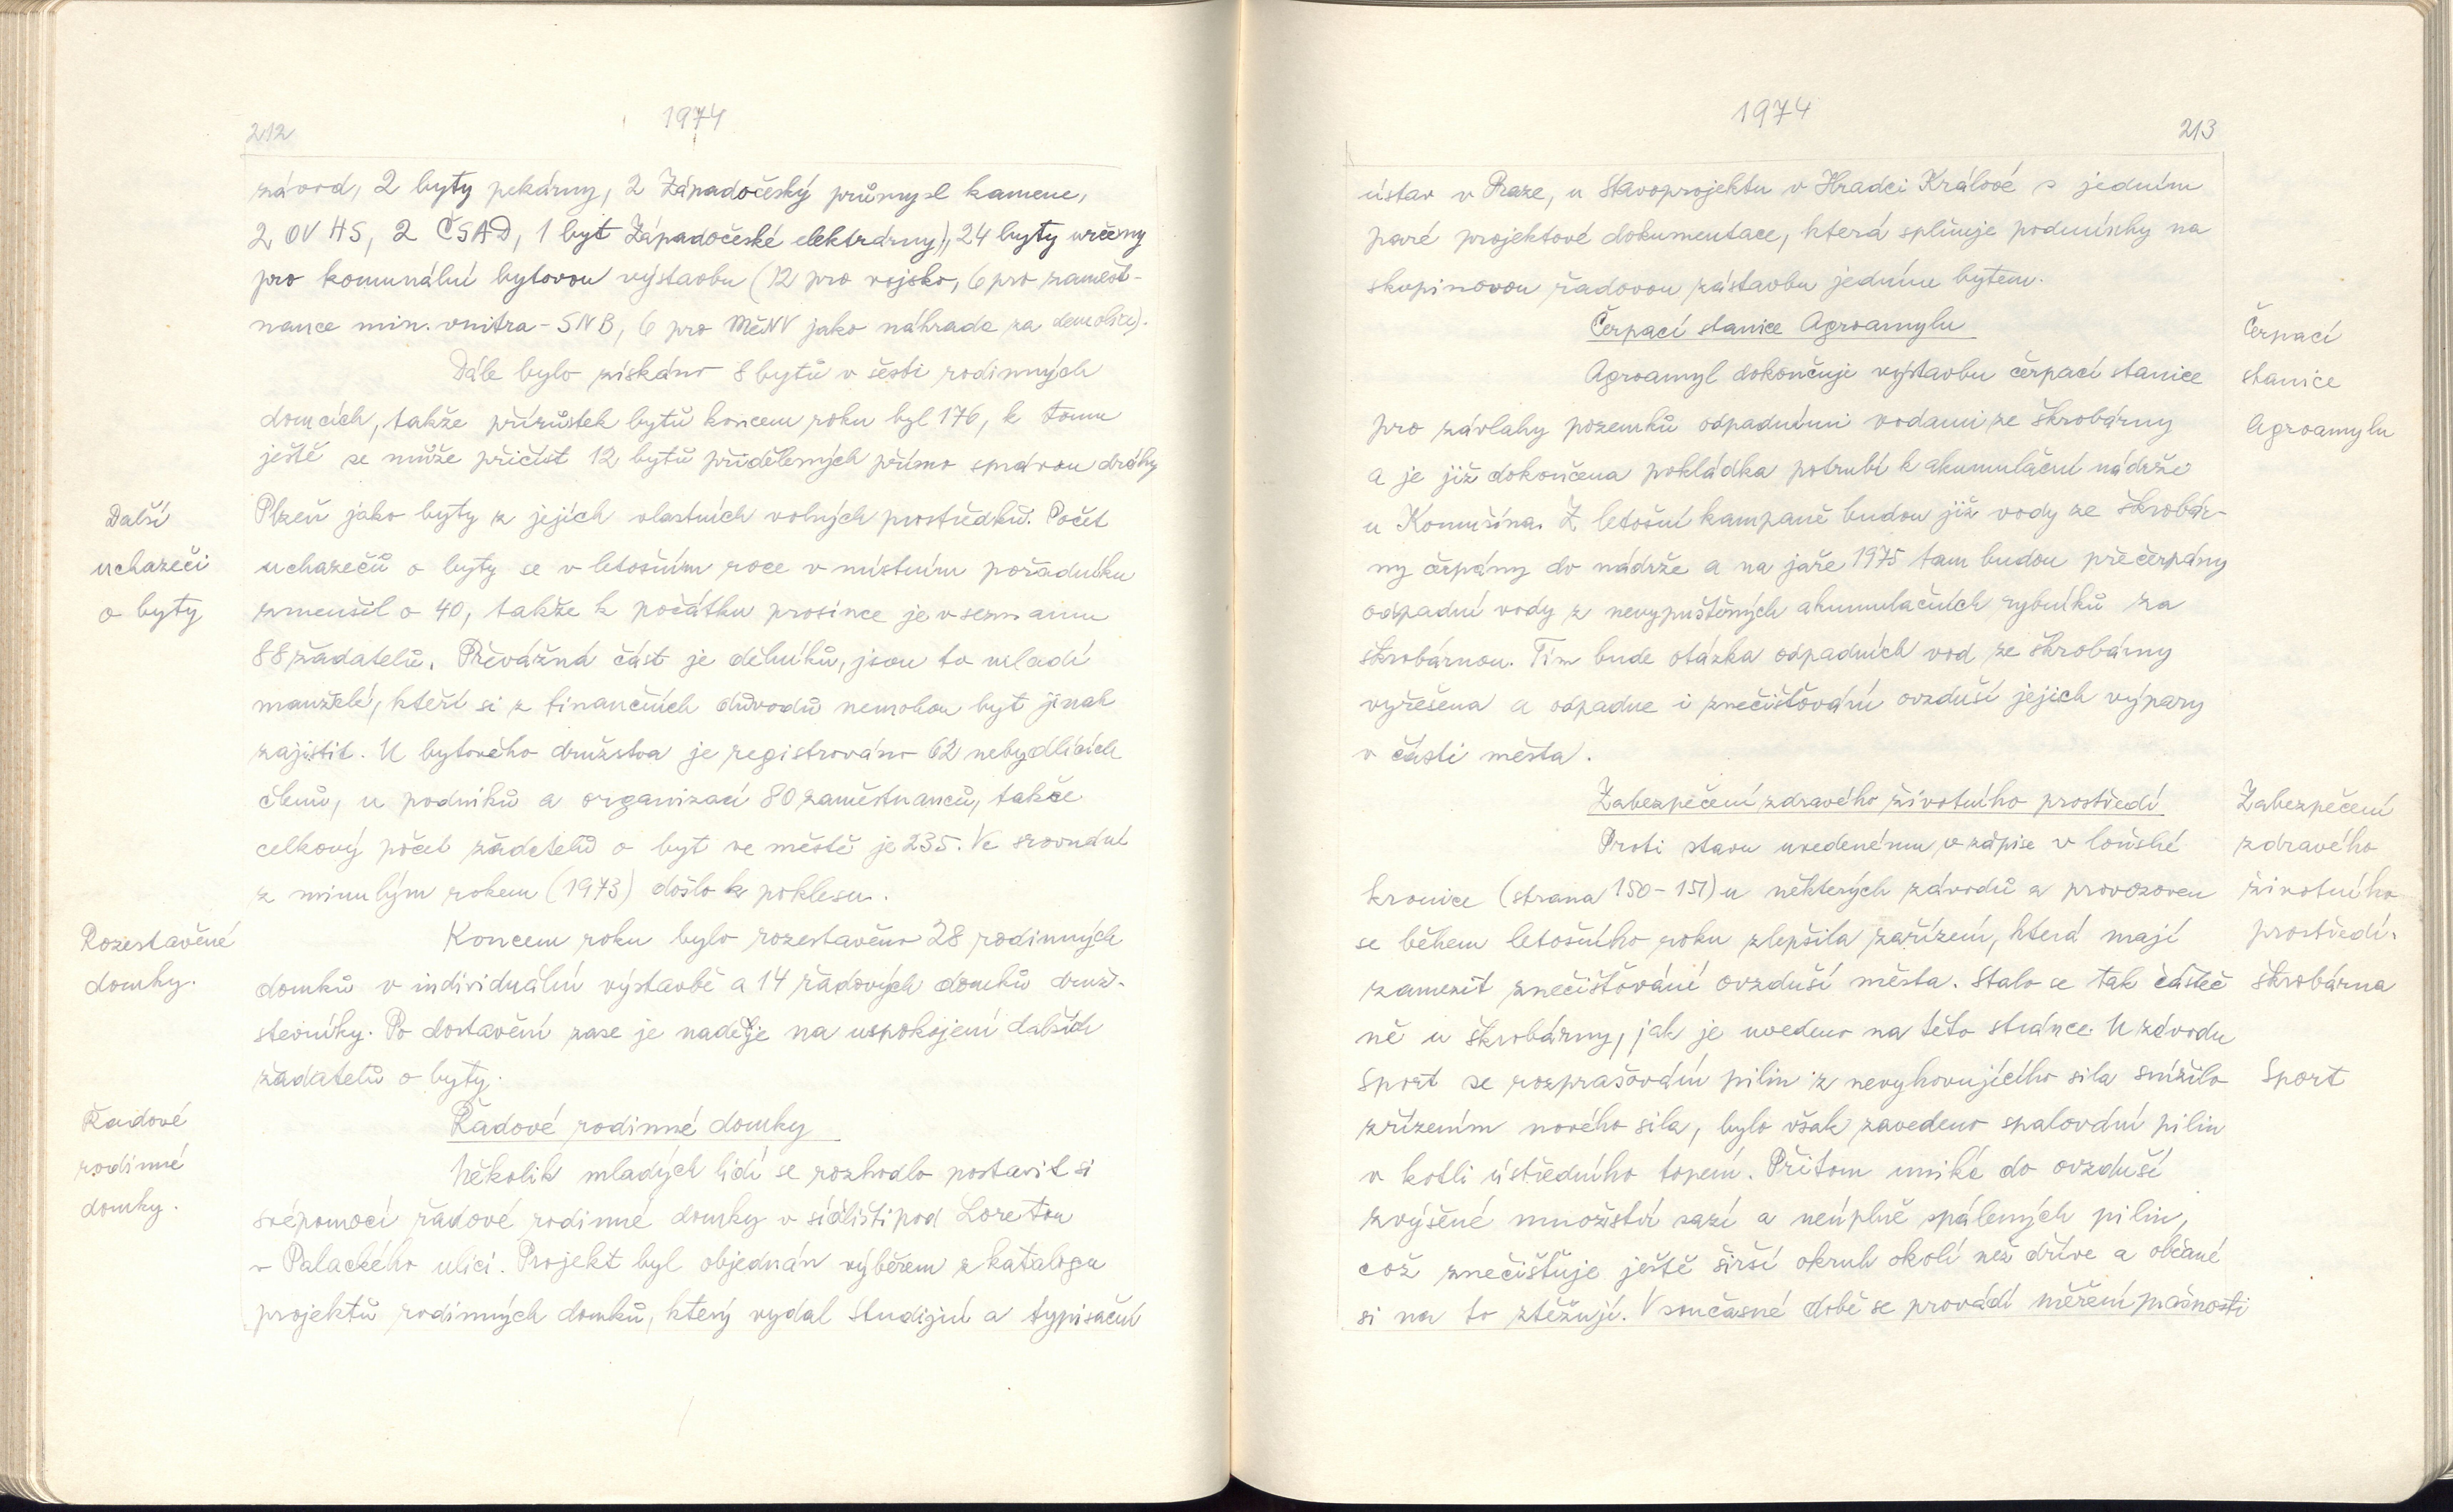 212
1974
závod, 2 byty pekárny, 2 Západočeský průmysl kamene,
2 OV HS, 2 ČSAD, 1 byt Západočeské elektrárny), 24 byty určeny
pro komunální bytovou výstavbu (12 pro vojsko, 6 pro zaměst-
nance min. vnitra - SNB, 6 pro MěNV jako náhrada za demolice).
Dále bylo získáno 8 bytů v šesti rodinných
domcích, takže přírůstek bytů koncem roku byl 176, k tomu
ještě se může přičíst 12 bytů přidělených přímo správou dráhy
Další
uchazeči
o byty
Plzeň jako byty z jejich vlastních volných prostředků. Počet
uchazečů o byty se v letošním roce v místním pořadníku
zmenšil o 40, takže k počátku prosince je v seznamu
88 žadatelů. Převážná část je dělníků, jsou to mladí
manželé, kteří si z finančních důvodů nemohou byt jinak
zajistit. U bytového družstva je registrováno 62 nebydlících
členů, u podniků a organizací 80 zaměstnanců, takže
celkový počet žadatelů o byt ve městě je 235. Ve srovnání
z minulým rokem (1973) došlo k poklesu.
Rozestavěné
domky.
Koncem roku bylo rozestavěno 28 rodinných
domků v individuální výstavbě a 14 řadových domků druž-
stevníky. Po dostavění zase je naděje na uspokojení dalších
žadatelů o byty.
Řadové
rodinné
domky.
Řadové rodinné domky
Několik mladých lidí se rozhodlo postavit si
svépomocí řadové rodinné domky v sídlišti pod Loretou
v Palackého ulici. Projekt byl objednán výběrem z katalogu
projektů rodinných domků, který vydal studijní a typisační
1974
213
ústav v Praze, u Stavoprojektu v Hradci Králové s jedním
paré projektové dokumentace, která splňuje podmínky na
skupinovou řadovou zástavbu jedním bytem.
Čerpací stanice Agroamylu
Čerpací
stanice
Agroamylu
Agroamyl dokončuje výstavbu čerpací stanice
pro závlahy pozemků odpadními vodami ze škrobárny
a je již dokončena pokládka potrubí k akumulační nádrži
u Komušína. Z letošní kampaně budou již vody ze škrobár-
ny čerpány do nádrže a na jaře 1975 tam budou přečerpány
odpadní vody z nevypuštěných akumulačních rybníků za
škrobárnou. Tím bude otázka odpadních vod ze škrobárny
vyřešena a odpadne i znečišťování ovzduší jejich výpary
v části města.
Zabezpečení zdravého životního prostředí
Zabezpečení
zdravého
životního
prostředí.
Proti stavu uvedenému v zápise v loňské
kronice (strana 150-151) u některých závodů a provozoven
se během letošního roku zlepšila zařízení, která mají
zamezit znečišťování ovzduší města. Stalo se tak částeč
škrobárna
ně u škrobárny, jak je uvedeno na této stránce. U závodu
Sport se rozprašování pilin z nevyhovujícího sila snížilo
Sport
zřízením nového sila, bylo však zavedeno spalování pilin
v kotli ústředního topení. Přitom uniká do ovzduší
zvýšené množství sazí a neúplně spálených pilin,
což znečišťuje ještě širší okruh okolí než dříve a občané
si na to ztěžují. V současné době se provádí měření prašnosti